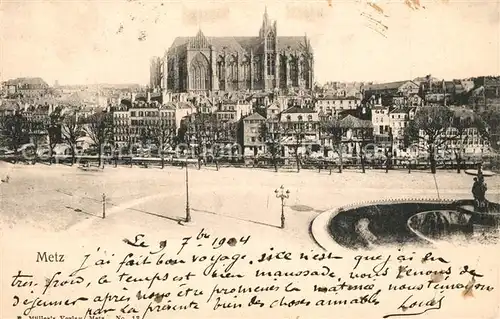 Metz
Le 9 7bre 1904
J'ai fait bon voyage, si ce n'est que j'ai eu
très froid, le temps est bien maussade, nous venons de
déjeuner après nous être promenés la matinée, nous t'envoyons
par la présente bien des choses aimables
Louis
Müller's Verlag Metz. No. 12